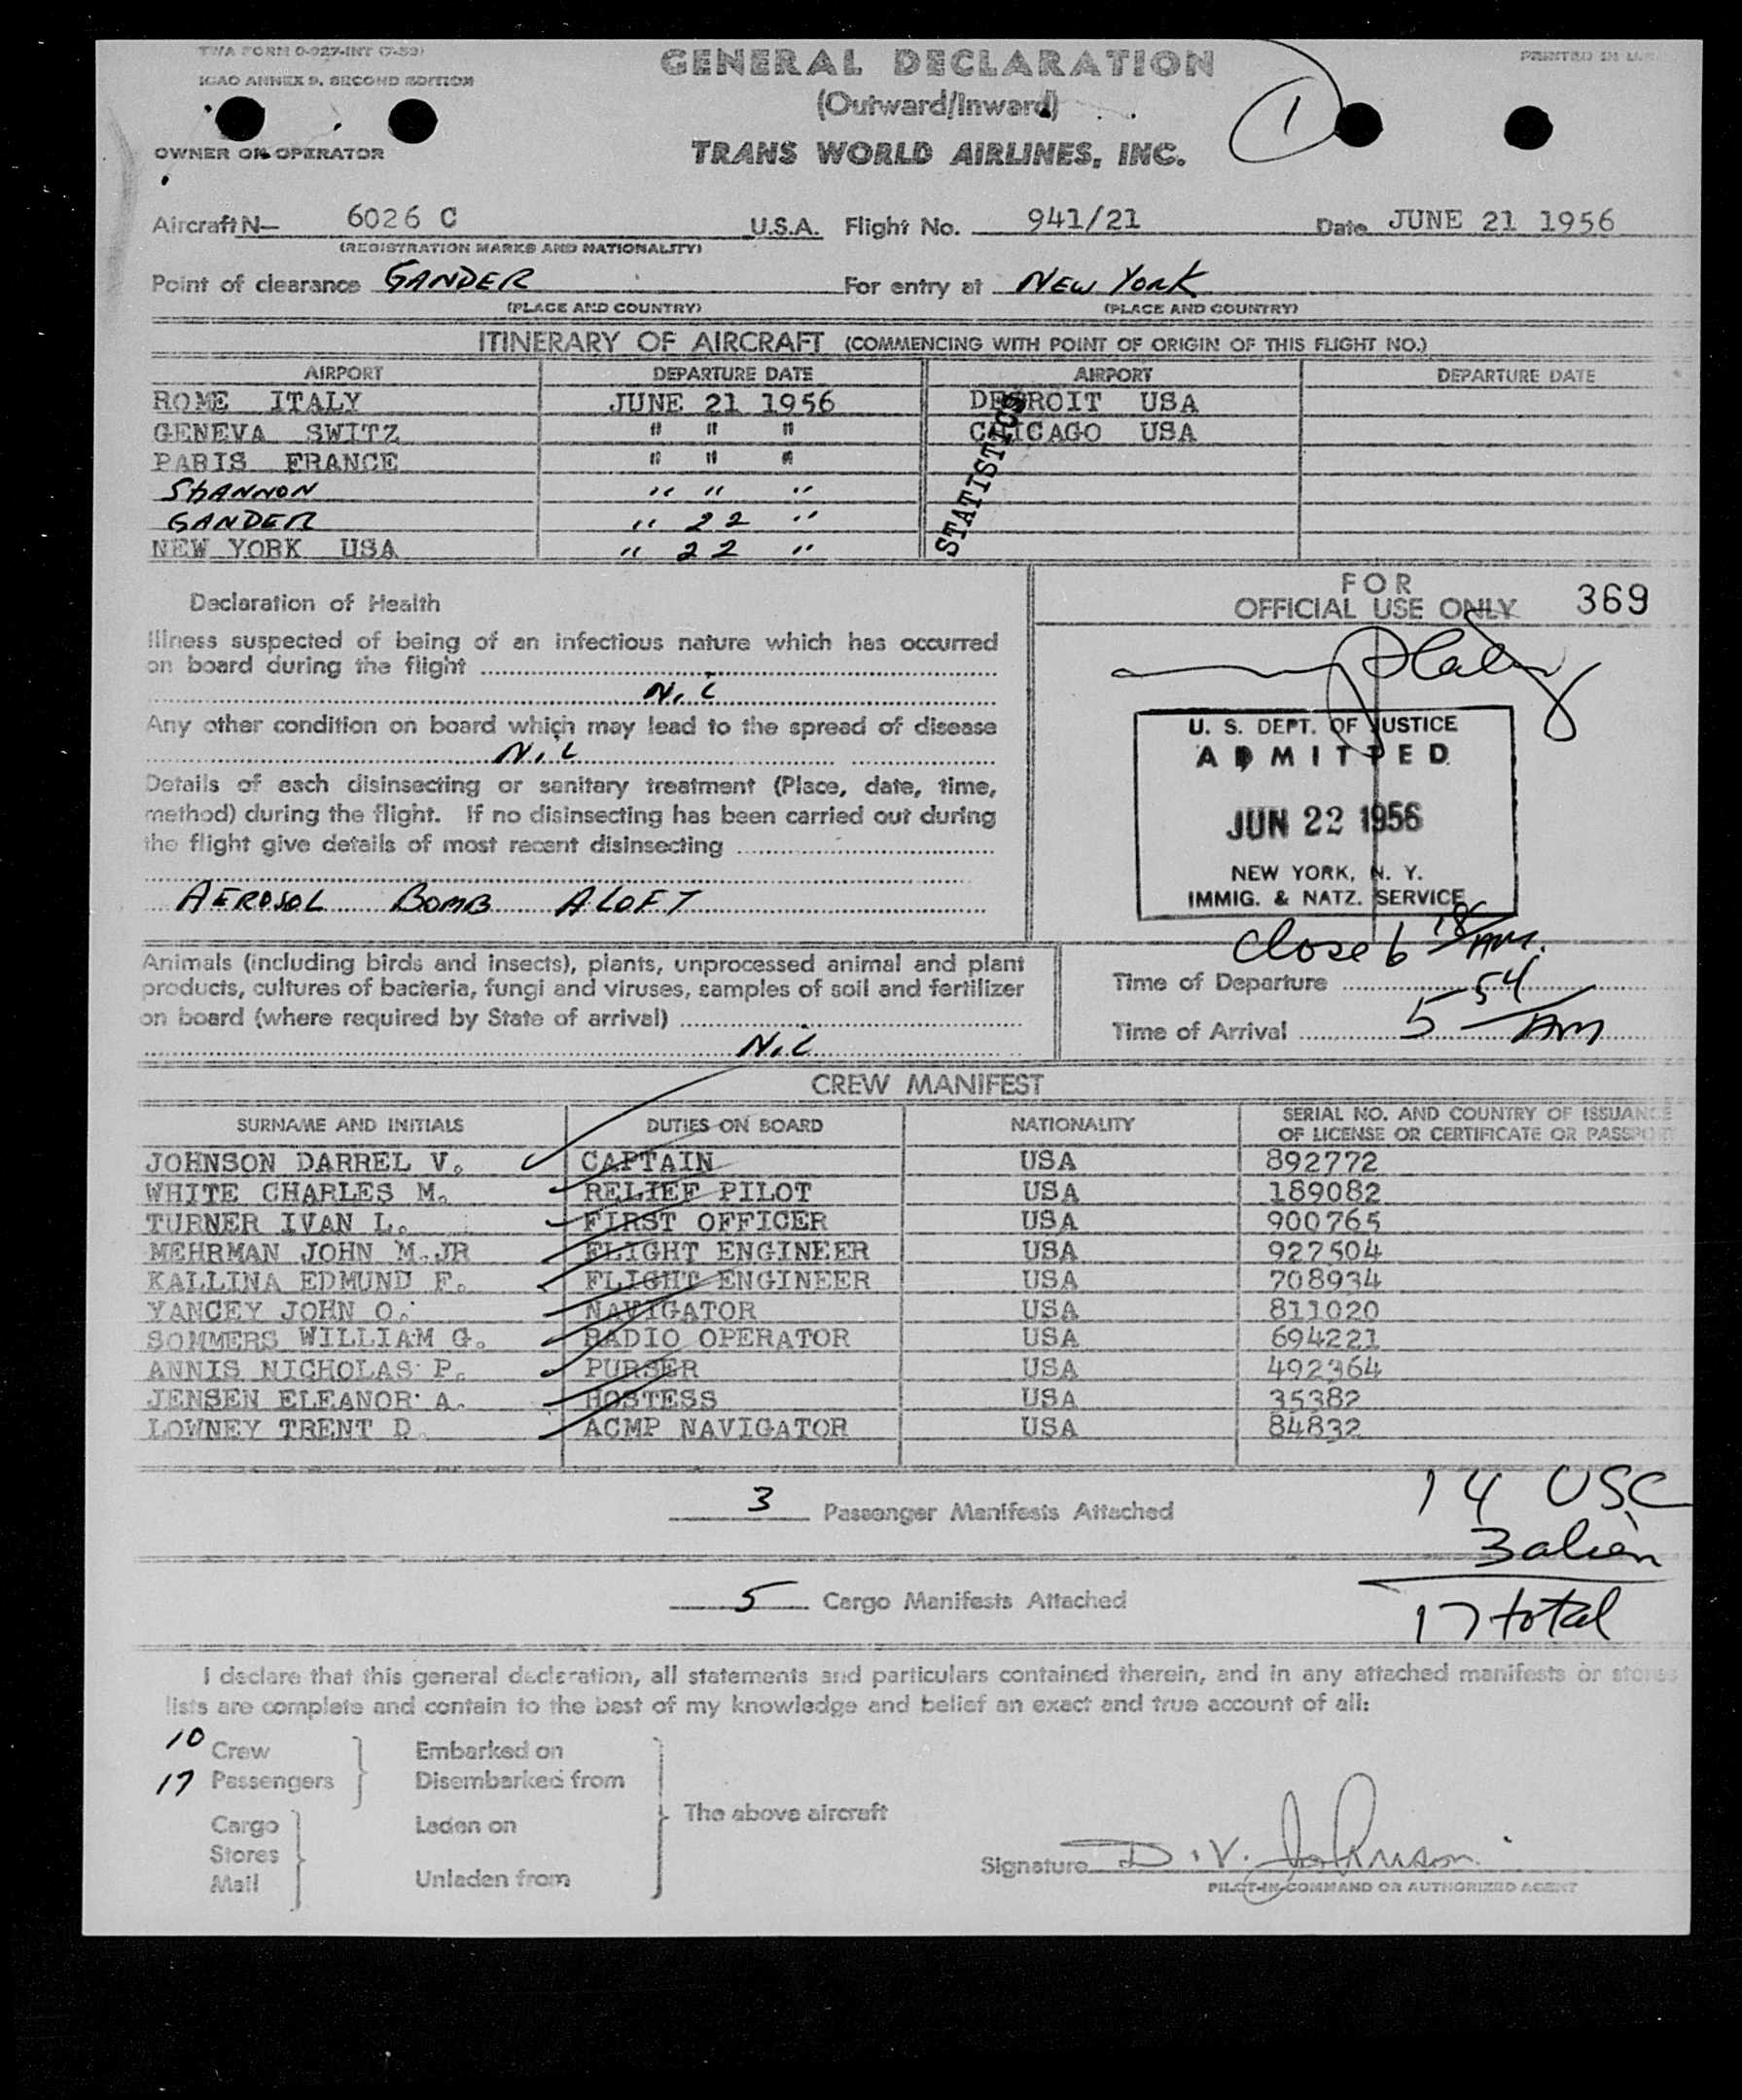 TWA FORM O-927-INT (7-53)
ICAO ANNEX 9, SECOND EDITION
GENERAL DECLARATION
PRINTED IN U.S.
(Outward/Inward)
1
OWNER OR OPERATOR
TRANS WORLD AIRLINES, INC.
Aircraft N— 6026 C U.S.A. Flight No. 941/21 Date JUNE 21 1956
(REGISTRATION MARKS AND NATIONALITY)
Point of clearance GANDER For entry at NEW YORK
(PLACE AND COUNTRY) (PLACE AND COUNTRY)
ITINERARY OF AIRCRAFT (COMMENCING WITH POINT OF ORIGIN OF THIS FLIGHT NO.)
AIRPORT DEPARTURE DATE AIRPORT DEPARTURE DATE
ROME ITALY JUNE 21 1956 DETROIT USA
GENEVA SWITZ " " " CHICAGO USA
PARIS FRANCE " " "
SHANNON " " "
GANDER " 22 "
NEW YORK USA " 22 "
STATISTICS
FOR
OFFICIAL USE ONLY 369
Declaration of Health
Illness suspected of being of an infectious nature which has occurred
on board during the flight
NiL
Any other condition on board which may lead to the spread of disease
NiL
Details of each disinsecting or sanitary treatment (Place, date, time,
method) during the flight. If no disinsecting has been carried out during
the flight give details of most recent disinsecting
AEROSOL BOMB ALOFT
U. S. DEPT. OF JUSTICE
ADMITTED
JUN 22 1956
NEW YORK, N. Y.
IMMIG. & NATZ. SERVICE
Close 6 18/AM.
Animals (including birds and insects), plants, unprocessed animal and plant
products, cultures of bacteria, fungi and viruses, samples of soil and fertilizer
on board (where required by State of arrival)
NiL
Time of Departure
Time of Arrival 5 54/AM
CREW MANIFEST
SURNAME AND INITIALS DUTIES ON BOARD NATIONALITY SERIAL NO. AND COUNTRY OF ISSUANCE
OF LICENSE OR CERTIFICATE OR PASSPORT
JOHNSON DARREL V. CAPTAIN USA 892772
WHITE CHARLES M. RELIEF PILOT USA 189082
TURNER IVAN L. FIRST OFFICER USA 900765
MEHRMAN JOHN M.JR FLIGHT ENGINEER USA 927504
KALLINA EDMUND F. FLIGHT ENGINEER USA 708934
YANCEY JOHN O. NAVIGATOR USA 811020
SOMMERS WILLIAM G. RADIO OPERATOR USA 694221
ANNIS NICHOLAS P. PURSER USA 492364
JENSEN ELEANOR A. HOSTESS USA 35382
LOWNEY TRENT D. ACMP NAVIGATOR USA 84832
3 Passenger Manifests Attached
5 Cargo Manifests Attached
14 USC
3 alien
17 total
I declare that this general declaration, all statements and particulars contained therein, and in any attached manifests or stores
lists are complete and contain to the best of my knowledge and belief an exact and true account of all:
10 Crew Embarked on
17 Passengers Disembarked from
The above aircraft
Cargo Laden on
Stores
Mail Unladen from
Signature D.V. Johnson
PILOT-IN-COMMAND OR AUTHORIZED AGENT